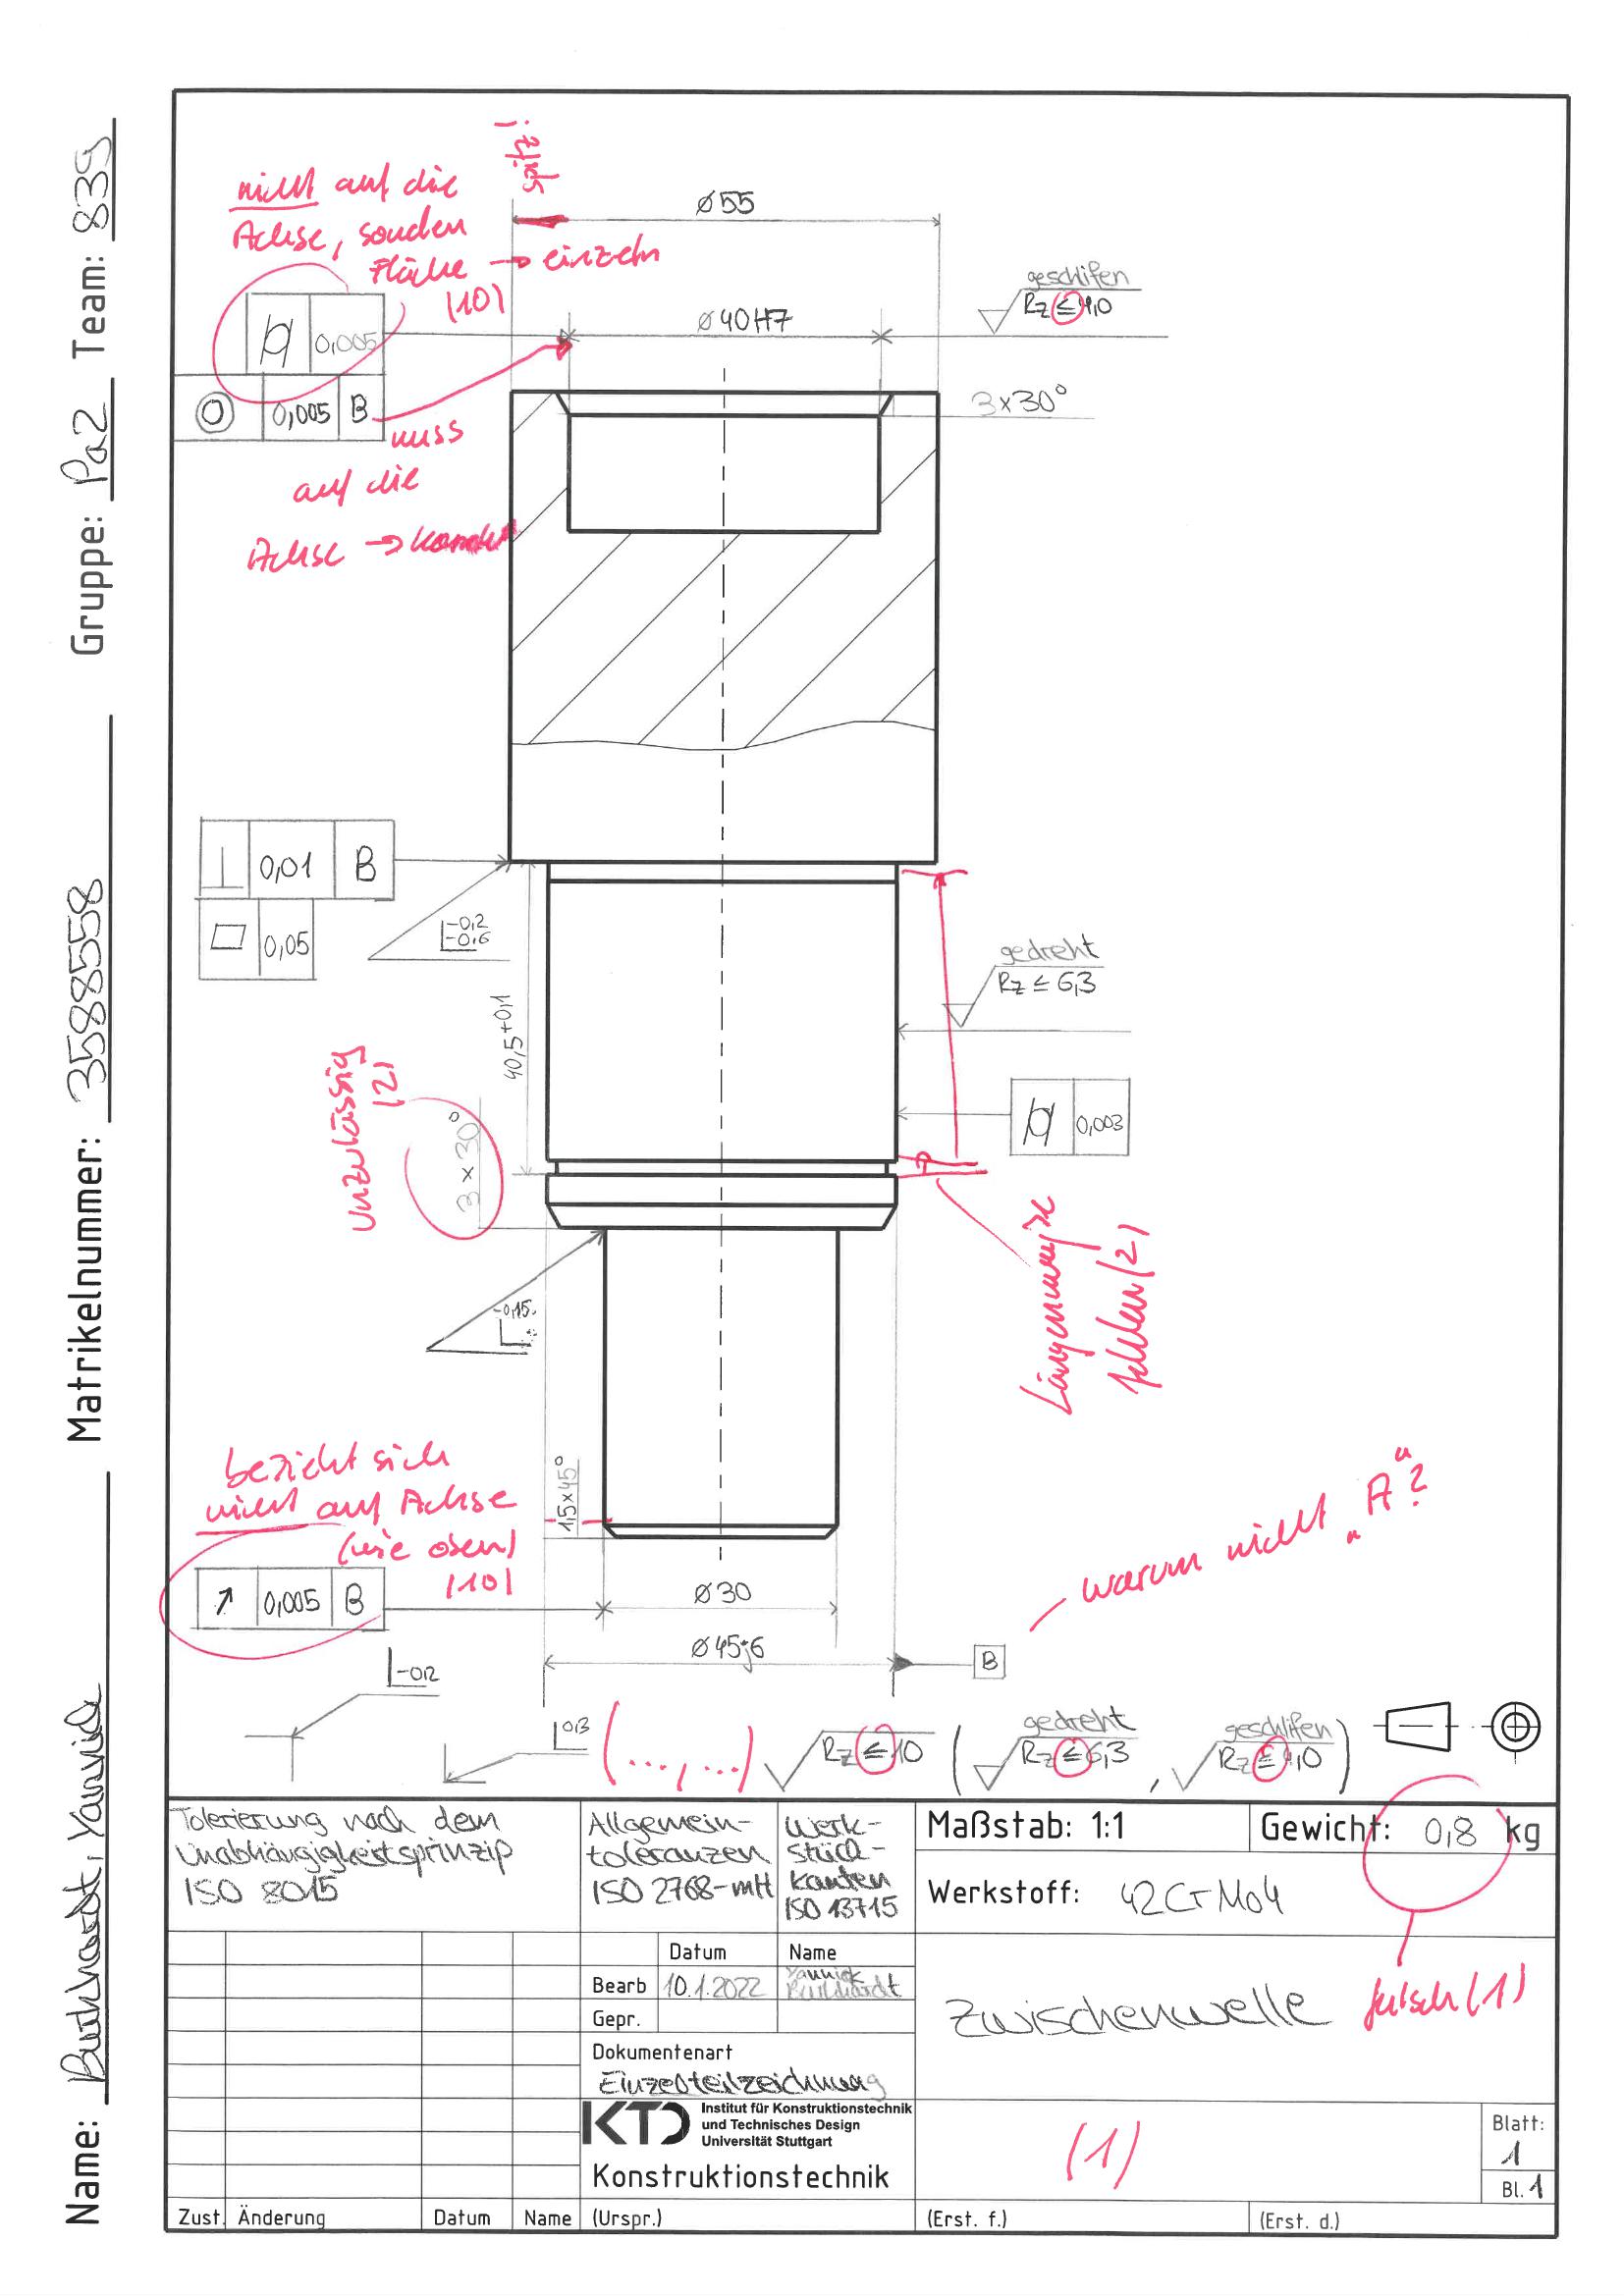 Name: Burkhardt, Yannick Matrikelnummer: 3588558 Gruppe: Pa2 Team: 839
spitz!
nicht auf die
Achse, sondern
Fläche → einzeln
(10)
⌀55
geschlifen
Rz ≤ 4,0
⌀40H7
0,005
3x30°
0,005 B
muss
auf die
Achse → korrekt
0,01 B
0,05
-0,2
-0,6
gedreht
Rz ≤ 6,3
40,5+0,1
0,003
unzulässig
(2)
3 x 30°
Längenmaße
fehlen (2)
-0,15
bezieht sich
nicht auf Achse
(wie oben)
(10)
1,5x45°
warum nicht „A“?
↗ 0,005 B
⌀30
⌀45j6
B
-0,2
0,3
(...,...)
Rz ≤ 10
gedreht
Rz ≤ 6,3
,
geschlifen
Rz ≤ 4,0
Tolerierung nach dem
Unabhängigkeitsprinzip
ISO 8015
Allgemein-
toleranzen
ISO 2768-mH
Werk-
stück-
kanten
ISO 13715
Maßstab: 1:1
Gewicht: 0,8 kg
Werkstoff: 42CrMo4
Datum Name
Bearb 10.1.2022 Yannick
Burkhardt
Gepr.
Zwischenwelle
falsch (1)
Dokumentenart
Einzelteilzeichnung
KTD
Institut für Konstruktionstechnik
und Technisches Design
Universität Stuttgart
Konstruktionstechnik
(1)
Blatt:
1
Bl. 1
Zust. Änderung Datum Name (Urspr.) (Erst. f.) (Erst. d.)